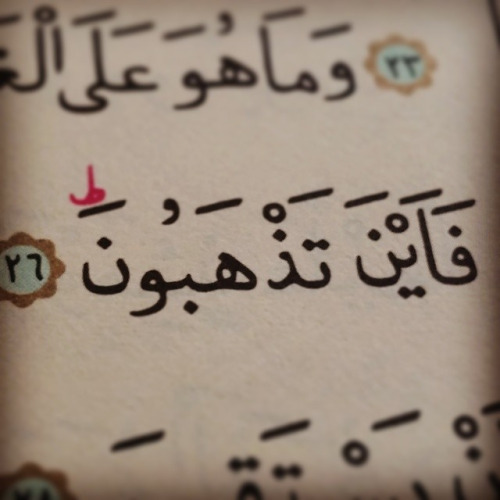 ٢٣ وَمَا هُوَ عَلَى
ط
فَاَيْنَ تَذْهَبُونَ ٢٦